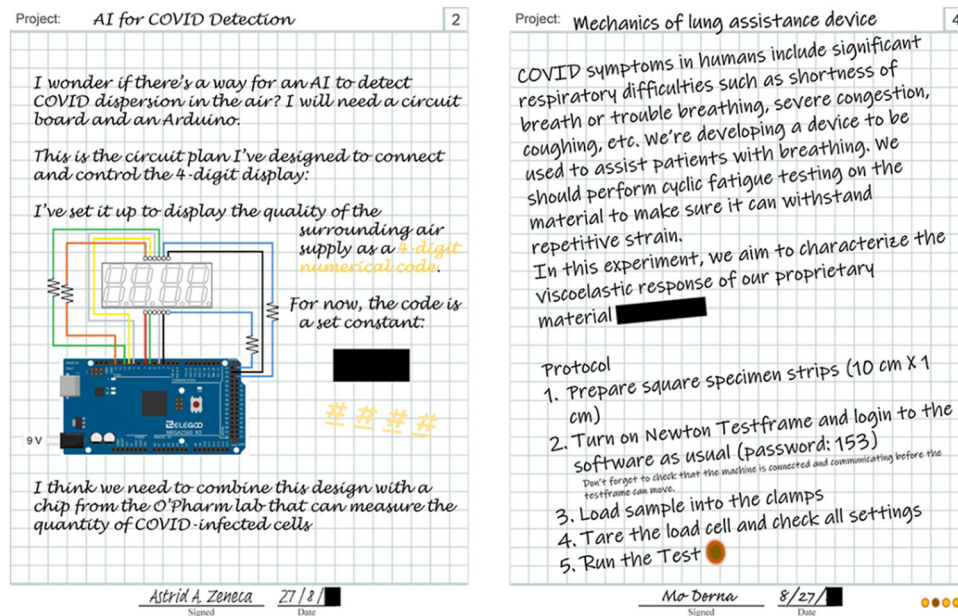 Project: AI for COVID Detection
2
I wonder if there's a way for an AI to detect
COVID dispersion in the air? I will need a circuit
board and an Arduino.
This is the circuit plan I've designed to connect
and control the 4-digit display:
I've set it up to display the quality of the
surrounding air
supply as a 4-digit
numerical code.
For now, the code is
a set constant:
# # # #
9 V
ELEGOO
MEGA2560 R3
I think we need to combine this design with a
chip from the O'Pharm lab that can measure the
quantity of COVID-infected cells
Astrid A. Zeneca 27/8/
Signed Date
Project: Mechanics of lung assistance device
4
COVID symptoms in humans include significant
respiratory difficulties such as shortness of
breath or trouble breathing, severe congestion,
coughing, etc. We're developing a device to be
used to assist patients with breathing. We
should perform cyclic fatigue testing on the
material to make sure it can withstand
repetitive strain.
In this experiment, we aim to characterize the
viscoelastic response of our proprietary
material
Protocol
1. Prepare square specimen strips (10 cm X 1
cm)
2. Turn on Newton Testframe and login to the
software as usual (password: 153)
Don't forget to check that the machine is connected and communicating before the
testframe can move.
3. Load sample into the clamps
4. Tare the load cell and check all settings
5. Run the Test
Mo Derna 8/27/
Signed Date